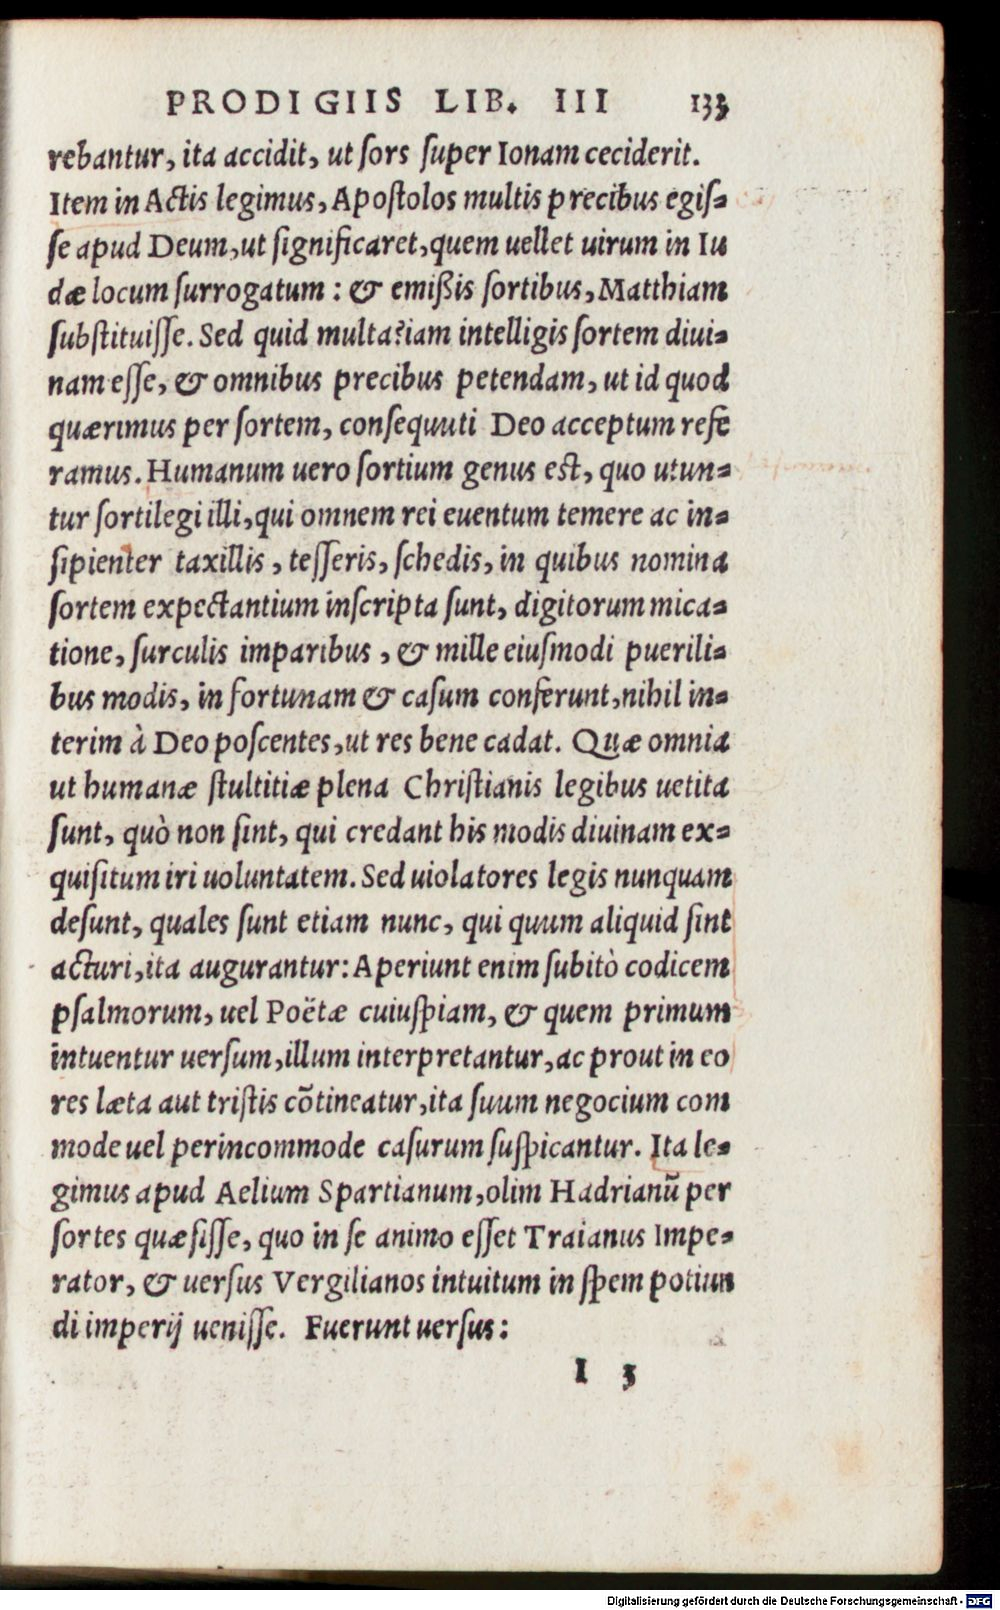 PRODIGIIS LIB. III 133
rebantur, ita accidit, ut ſors ſuper Ionam ceciderit.
Item in Actis legimus, Apoſtolos multis precibus egiſ-
ſe apud Deum, ut ſignificaret, quem uellet uirum in Iu
dæ locum ſurrogatum: & emißis ſortibus, Matthiam
ſubſtituiſſe. Sed quid multa? iam intelligis ſortem diui-
nam eſſe, & omnibus precibus petendam, ut id quod
quærimus per ſortem, conſequuti Deo acceptum refe
ramus. Humanum uero ſortium genus eſt, quo utun-
tur ſortilegi illi, qui omnem rei euentum temere ac in-
ſipienter taxillis, teſſeris, ſchedis, in quibus nomina
ſortem expectantium inſcripta ſunt, digitorum mica-
tione, ſurculis imparibus, & mille eiuſmodi puerili-
bus modis, in fortunam & caſum conferunt, nihil in-
terim à Deo poſcentes, ut res bene cadat. Quæ omnia
ut humanæ ſtultitiæ plena Chriſtianis legibus uetita
ſunt, quò non ſint, qui credant his modis diuinam ex-
quiſitum iri uoluntatem. Sed uiolatores legis nunquam
deſunt, quales ſunt etiam nunc, qui quum aliquid ſint
acturi, ita augurantur: Aperiunt enim ſubitò codicem
pſalmorum, uel Poëtæ cuiuſpiam, & quem primum
intuentur uerſum, illum interpretantur, ac prout in eo
res læta aut triſtis cõtineatur, ita ſuum negocium com
mode uel perincommode caſurum ſuſpicantur. Ita le-
gimus apud Aelium Spartianum, olim Hadrianũ per
ſortes quæſiſſe, quo in ſe animo eſſet Traianus Impe-
rator, & uerſus Vergilianos intuitum in ſpem potiun
di imperij ueniſſe. Fuerunt uerſus:
I 3
Digitalisierung gefördert durch die Deutsche Forschungsgemeinschaft - DFG